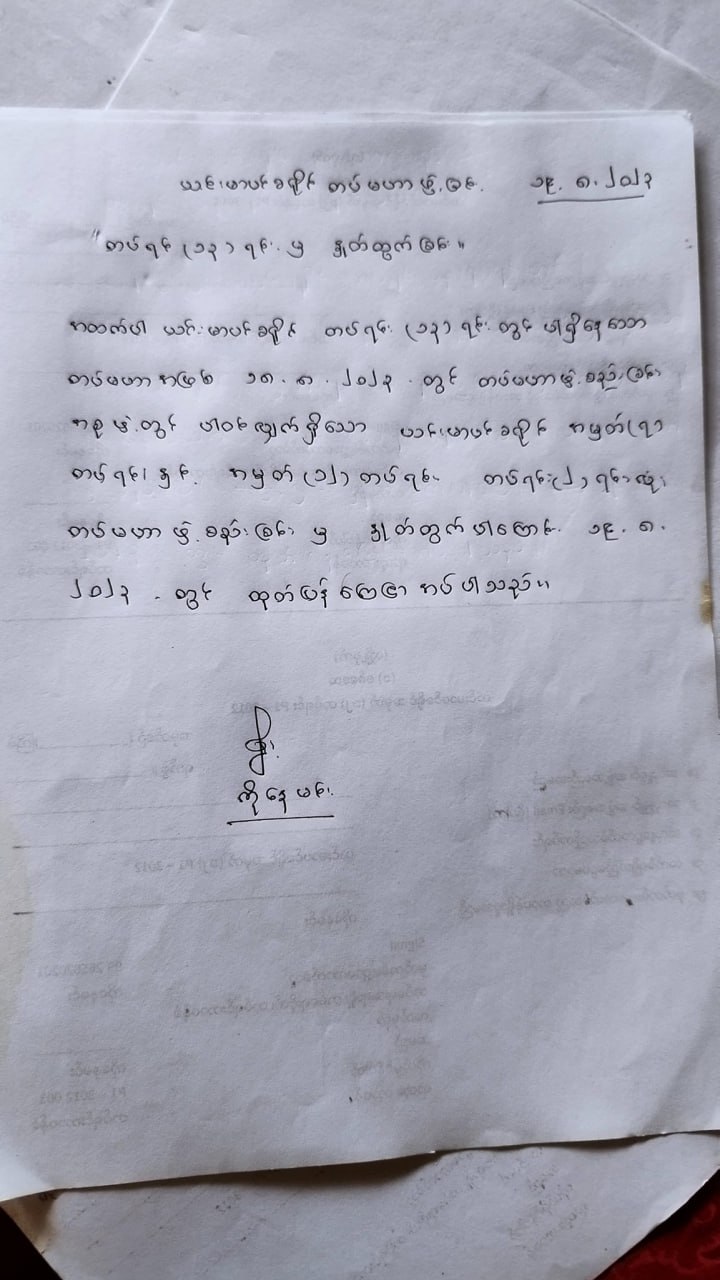 ယင်းမာပင်ခရိုင် တပ်မဟာဖွဲ့ခြင်း. ၁၉. ၈. ၂၀၂၃
"တပ်ရင်း (၁၃) ရင်း မှ နှုတ်ထွက်ခြင်း"
အထက်ပါ ယင်းမာပင်ခရိုင် တပ်ရင်း (၁၃) ရင်း တွင် ပါရှိနေသော
တပ်မဟာအဖြစ် ၁၈. ၈. ၂၀၂၃. တွင် တပ်မဟာဖွဲ့စည်းခြင်း
အစုဖွဲ့တွင် ပါဝင်လျှက်ရှိသော ယင်းမာပင်ခရိုင် အမှတ်(၇)
တပ်ရင်းနှင့် အမှတ် (၁၂) တပ်ရင်း တပ်ရင်း(၂) ရင်းလုံး
တပ်မဟာဖွဲ့စည်းခြင်း မှ နှုတ်ထွက်ပါကြောင်း ၁၉. ၈.
၂၀၂၃. တွင် ထုတ်ပြန်ကြေငြာအပ်ပါသည်။
ကိုနေမင်း